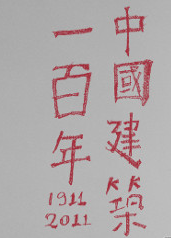 中國建築
一百年
1911
2011